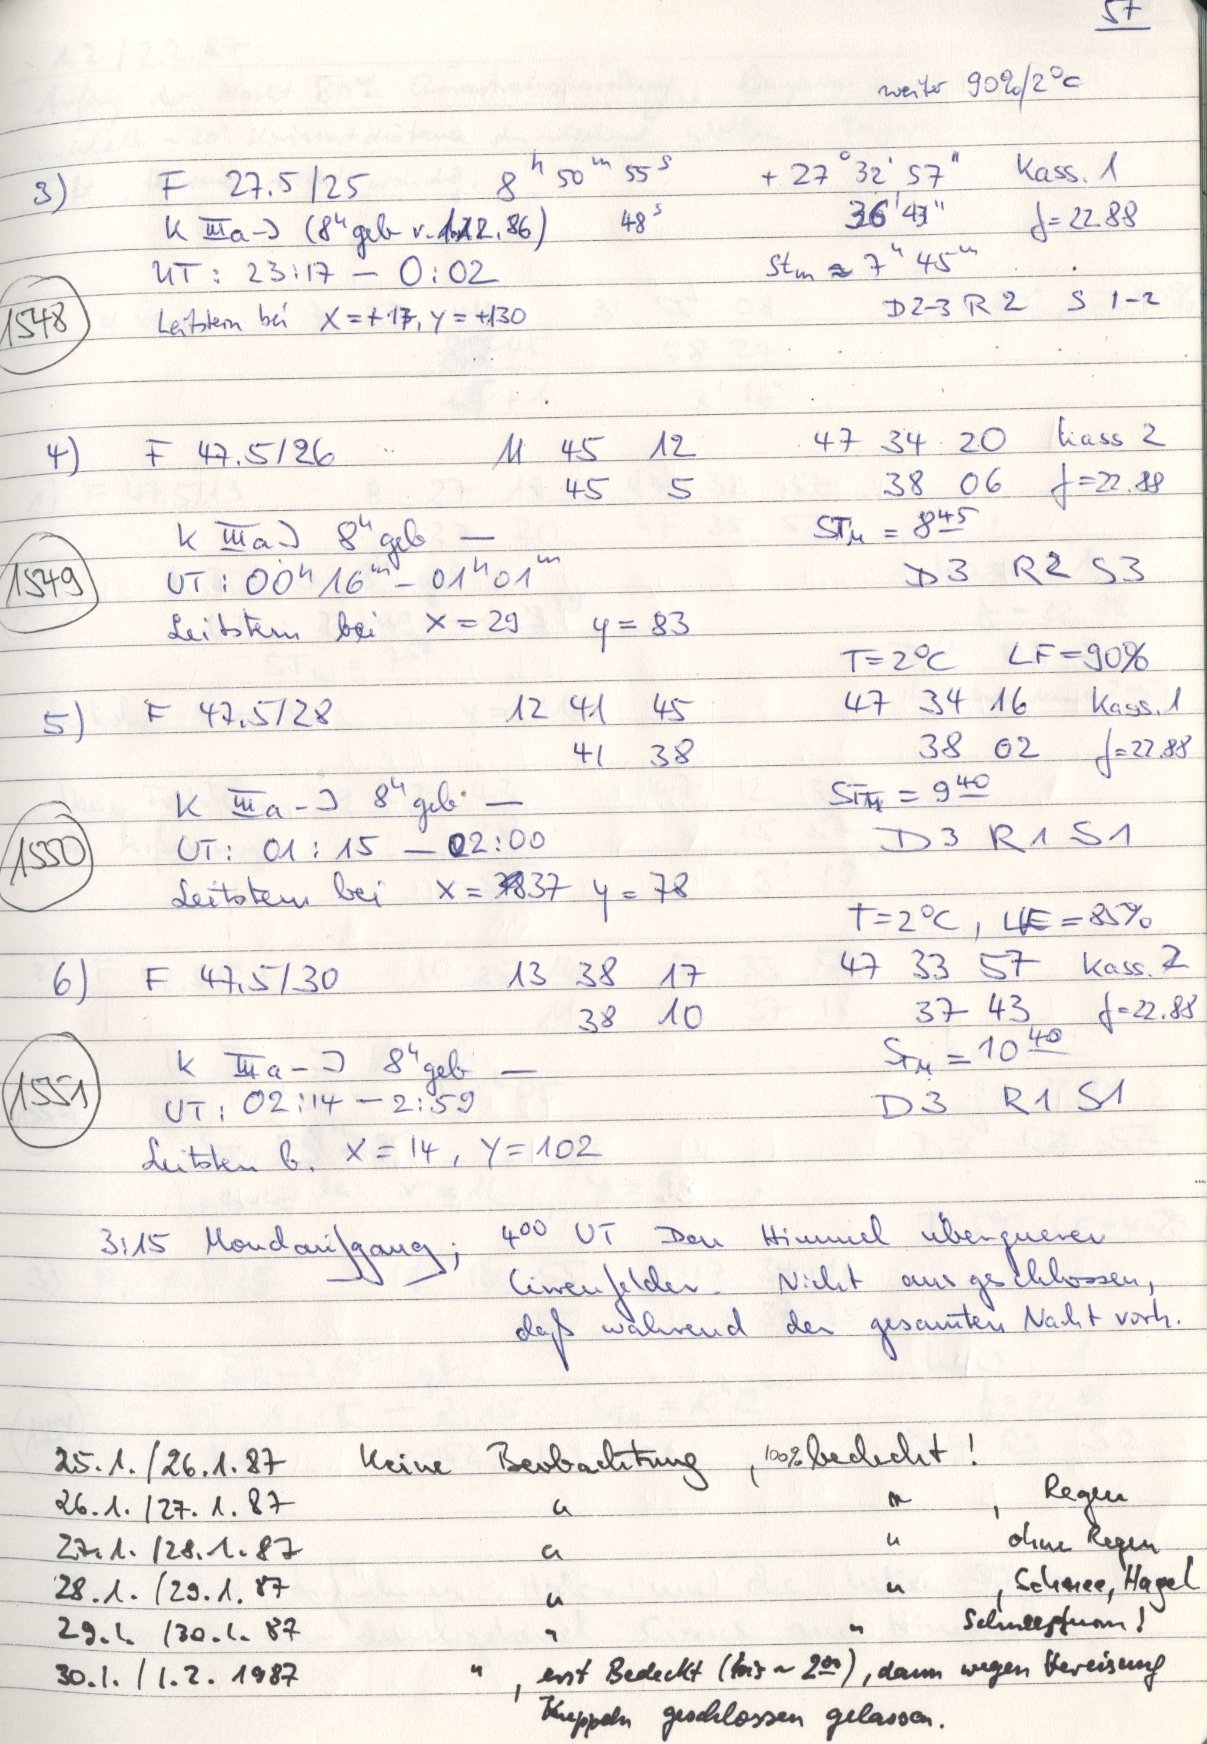 57
weiter 90%/2°C
3) F 27.5/25 8h 50m 55s +27° 32' 57" Kass. 1
K IIIa-J (8h geb v. 1.12.86) 48s 36' 43" f=22.88
UT: 23:17 – 0:02 Stm ≈ 7h 45m
1548 Leitstern bei X=+17, Y=+130 D2-3 R2 S 1-2
4) F 47.5/26 11 45 12 47 34 20 Kass 2
45 5 38 06 f=22.88
K IIIa-J 8h geb — STM = 8 45
1549 UT: 00h 16m – 01h 01m D3 R2 S3
Leitstern bei X=29 y=83
T=2°C LF=90%
5) F 47.5/28 12 41 45 47 34 16 Kass. 1
41 38 38 02 f=22.88
K IIIa-J 8h geb. — STM = 9 40
1550 UT: 01:15 – 02:00 D3 R1 S1
Leitstern bei X= 37 y=78
T=2°C, LF=85%
6) F 47.5/30 13 38 17 47 33 57 Kass. 2
38 10 37 43 f=22.88
K IIIa-J 8h geb — STM = 10 40
1551 UT: 02:14 – 2:59 D3 R1 S1
Leitstern b. X=14, Y=102
3:15 Mondaufgang; 4 00 UT Den Himmel überqueren
Cirrenfelder. Nicht ausgeschlossen,
daß während der gesamten Nacht vorh.
25.1./26.1.87 Keine Beobachtung, 100% bedeckt!
26.1./27.1.87 " " , Regen
27.1./28.1.87 " " ohne Regen
28.1./29.1.87 " " , Schnee, Hagel
29.1./30.1.87 " " Schneesturm!
30.1./1.2.1987 " , erst Bedeckt (bis ~ 2 00), dann wegen Vereisung
Kuppeln geschlossen gelassen.